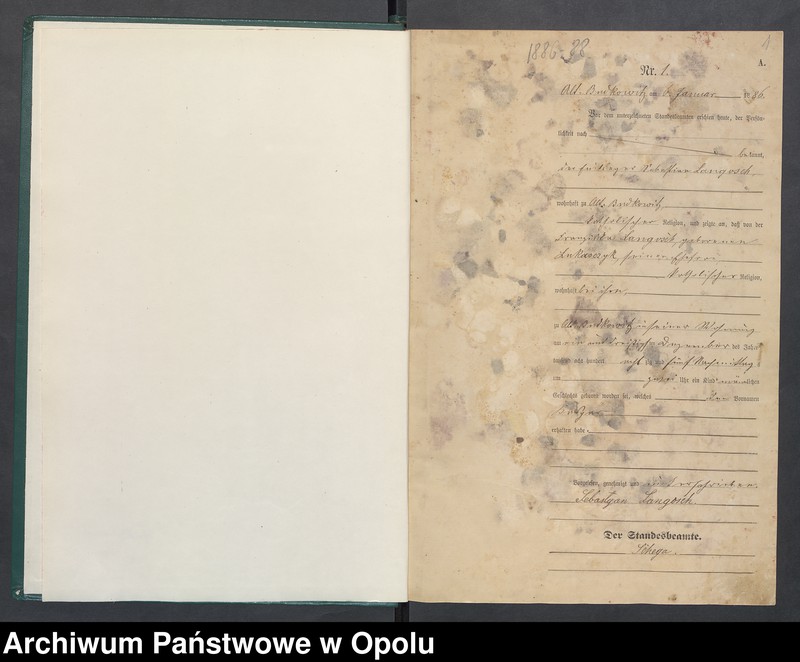 1886-88
1
A.
Nr. 1.
Alt Budkowitz am 6. Januar 1886.
Vor dem unterzeichneten Standesbeamten erschien heute, der Persön-
lichkeit nach
bekannt,
der Sebastian Langosch
wohnhaft zu Alt Budkowitz
katholischer Religion, und zeigte an, daß von der
Franziska Langosch geborenen
seiner Ehefrau
katholischer Religion,
wohnhaft bei ihm
zu Alt Budkowitz in seiner Wohnung
am ein und dreißigsten Dezember des Jahres
tausend acht hundert acht zig und fünf Nachmittags
um zwei Uhr ein Kind männlichen
Geschlechts geboren worden sei, welches den Vornamen
erhalten habe.
Vorgelesen, genehmigt und unterschrieben
Sebastyan Langosch.
Der Standesbeamte.
Archiwum Państwowe w Opolu